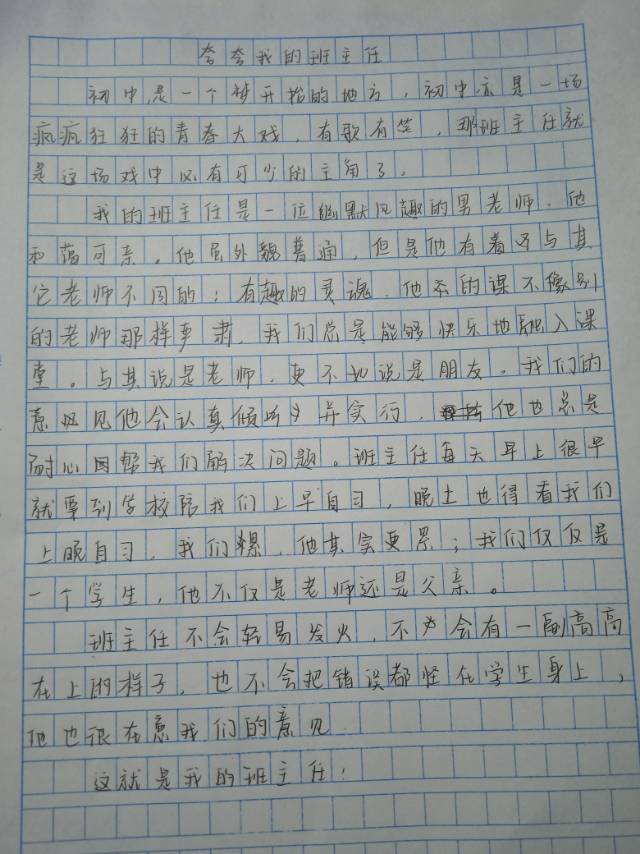 夸夸我的班主任
初中是一个梦开始的地方，初中亦是一场
疯疯狂狂的青春大戏，有歌有笑，那班主任就
是这场戏中必有可少的主角了。
我的班主任是一位幽默风趣的男老师。他
和蔼可亲。他虽外貌普通，但是他有着与其
它老师不同的：有趣的灵魂。他的课不像别
的老师那样严肃，我们总是能够快乐地融入课
堂。与其说是老师，更不如说是朋友。我们的
意见他会认真倾听并实行，他也总是
耐心回帮我们解决问题。班主任每天早上很早
就要到学校陪我们上早自习，晚上也得看我们
上晚自习，我们累，他其实更累；我们仅仅是
一个学生，他不仅是老师还是父亲。
班主任不会轻易发火，不会有一副高高
在上的样子，也不会把错误都怪在学生身上，
他也很在意我们的意见
这就是我的班主任！